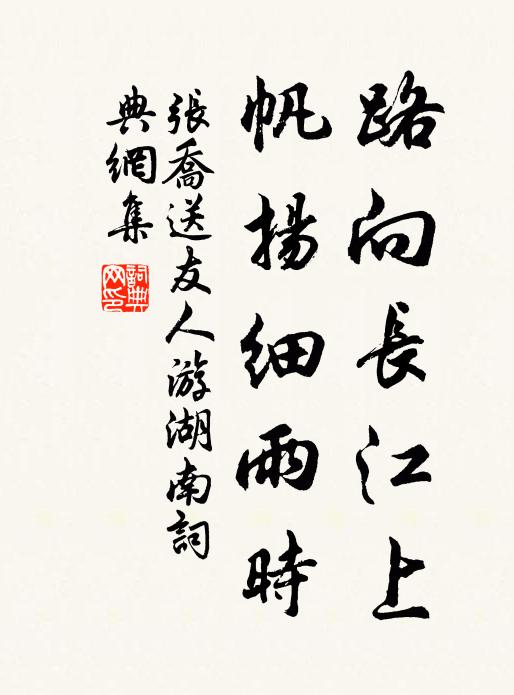 路向長江上
帆揚細雨時
張喬送友人游湖南詞
典網集
詞典網印